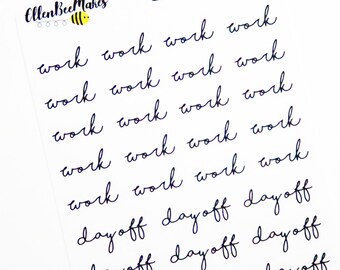 EllenBeeMakes
work work work work
work work work work
work work work work
work work work work
work work work work
day off day off day off
day off day off day off
day off